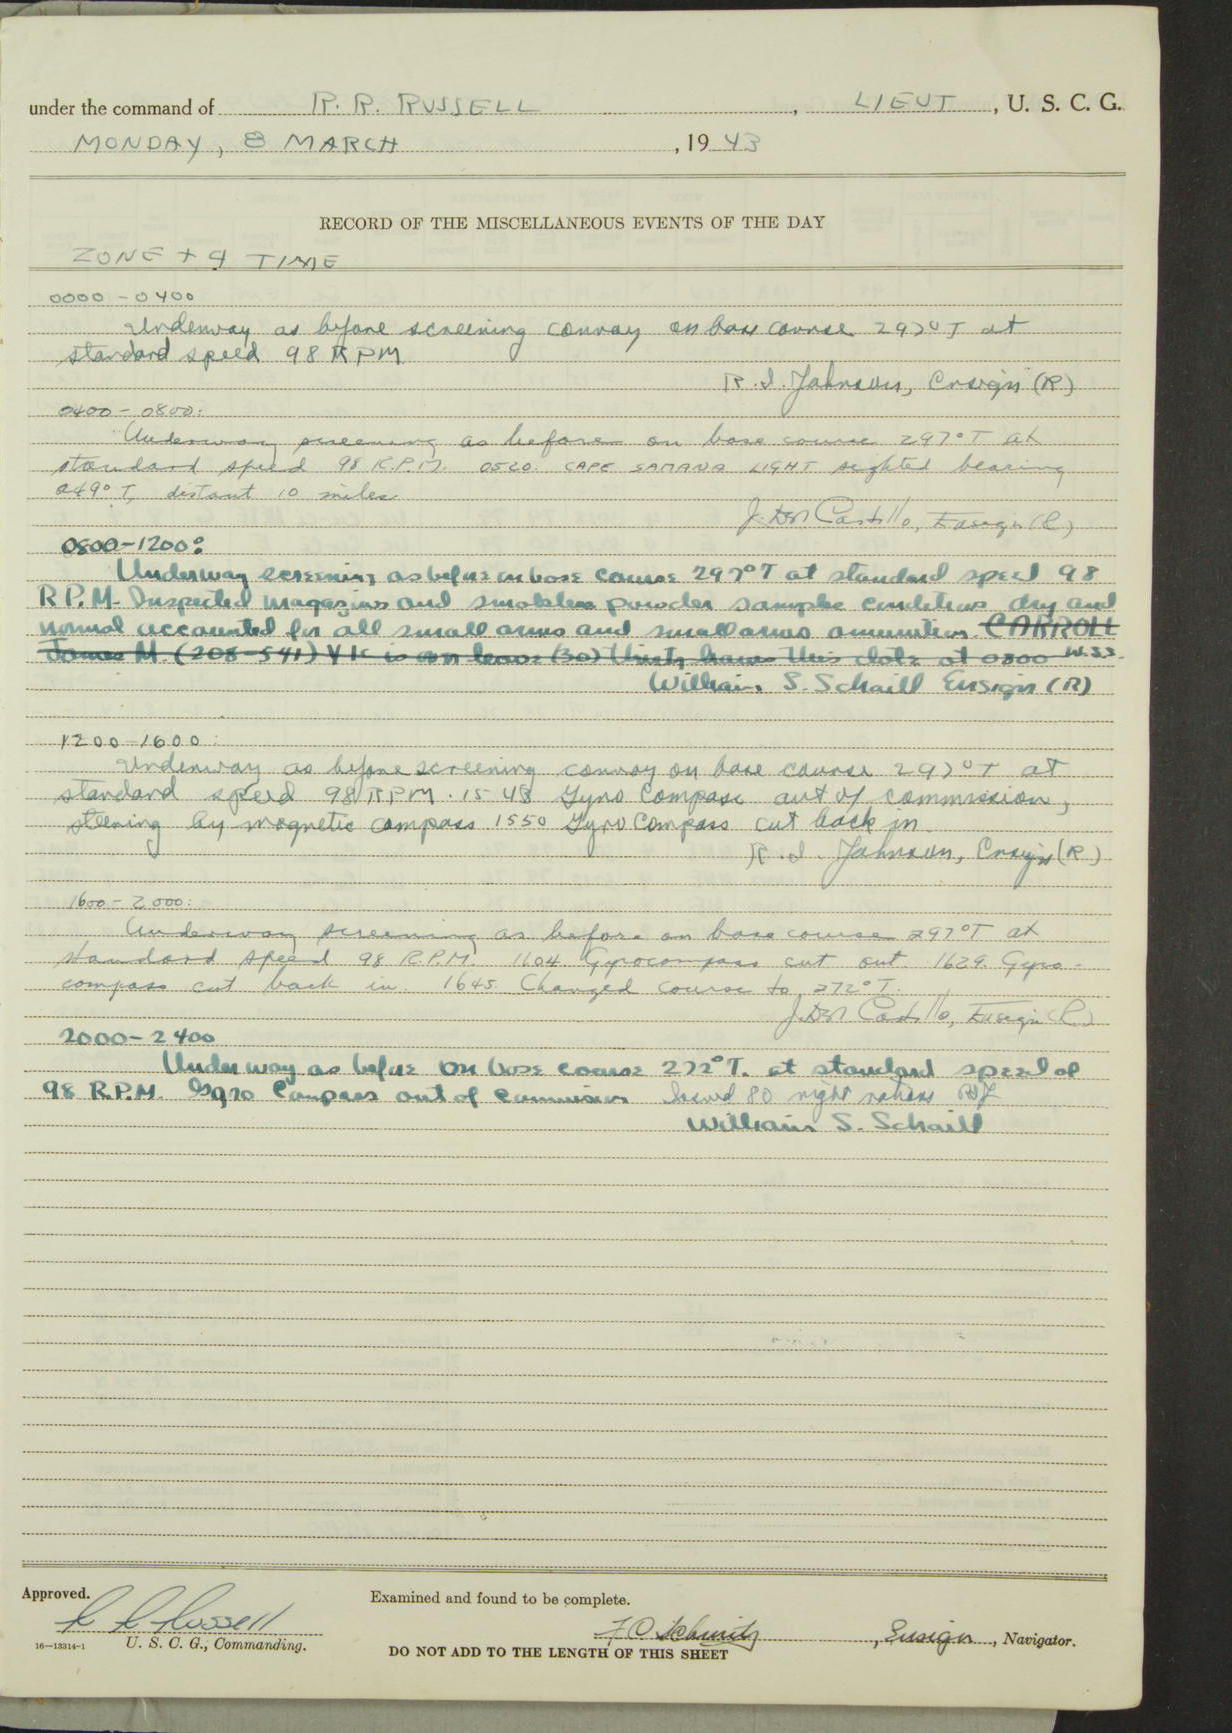 under the command of R. R. RUSSELL, LIEUT, U. S. C. G.
MONDAY, 8 MARCH, 1943
RECORD OF THE MISCELLANEOUS EVENTS OF THE DAY
ZONE + 4 TIME
0000 - 0400
Underway as before screening convoy on base course 297°T at
standard speed 98 RPM
R. I. Johnson, Ensign (R)
0400 - 0800:
Underway screening as before on base course 297°T at
standard speed 98 R.P.M. 0520. CAPE SAMANA LIGHT sighted bearing
249°T, distant 10 miles
J. Del Castillo, Ensign (R)
0800-1200:
Underway screening as before on base course 297°T at standard speed 98
R.P.M. Inspected magazines and smokeless powder samples conditions dry and
normal accounted for all small arms and small arms amunition. CARROLL
James M. (208-541) Y1c is on leave (30) thirty hours this date at 0800 W.S.S.
William S. Schaill Ensign (R)
1200-1600:
Underway as before screening convoy on base course 297°T at
standard speed 98 RPM. 1548 Gyro Compass out of commission,
steering by magnetic compass. 1550 Gyro Compass cut back in
R. I. Johnson, Ensign (R)
1600-2000:
Underway screening as before on base course 297°T at
standard speed 98 R.P.M. 1604. Gyrocompass cut out. 1629. Gyro-
compass cut back in. 1645. Changed course to 272°T.
J. Del Castillo, Ensign (R)
2000-2400
Underway as before on base course 272°T. at standard speed of
98 R.P.M. Gyro Compass out of commission Issued 80 night rations
William S. Schaill
Approved.
R R Russell
U. S. C. G., Commanding.
16—13314-1
Examined and found to be complete.
F O Schmitz, Ensign, Navigator.
DO NOT ADD TO THE LENGTH OF THIS SHEET